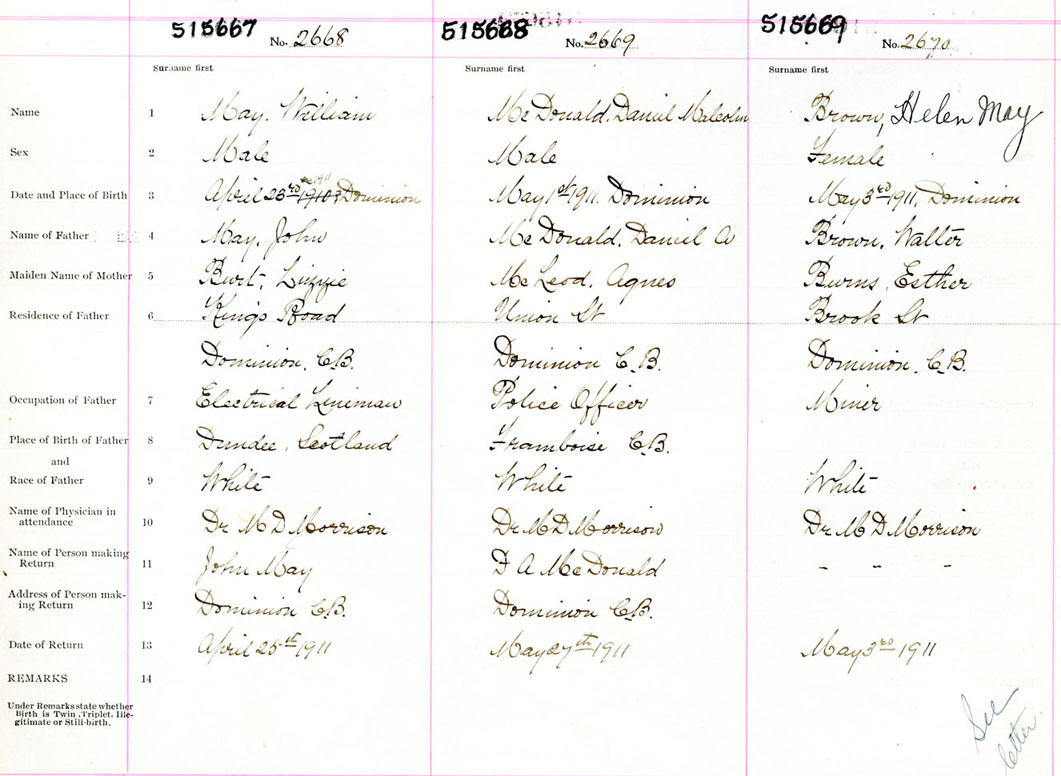 515667 No. 2668 515668 No. 2669 515669 No. 2670
Surname first Surname first Surname first
Name 1 May, William Mc Donald, Daniel Malcolm Brown, Helen May
Sex 2 Male Male Female
Date and Place of Birth 3 April 23rd 1910 Dominion May 1st 1911, Dominion May 3rd 1911, Dominion
Name of Father 4 May, John Mc Donald, Daniel A Brown, Walter
Maiden Name of Mother 5 Burt, Lizzie Mc Leod, Agnes Burns, Esther
Residence of Father 6 Kings Road Union St Brook St
Dominion, C.B. Dominion C.B. Dominion, C.B.
Occupation of Father 7 Electrical Lineman Police Officer Miner
Place of Birth of Father 8 Dundee, Scotland Framboise C.B.
and
Race of Father 9 White White White
Name of Physician in
attendance 10 Dr M D Morrison Dr M D Morrison Dr M D Morrison
Name of Person making
Return 11 John May D A Mc Donald - " -
Address of Person mak-
ing Return 12 Dominion C.B. Dominion C.B.
Date of Return 13 April 25th 1911 May 27th 1911 May 3rd 1911
REMARKS 14
Under Remarks state whether
Birth is Twin, Triplet, Ille-
gitimate or Still-birth.
See
letter.